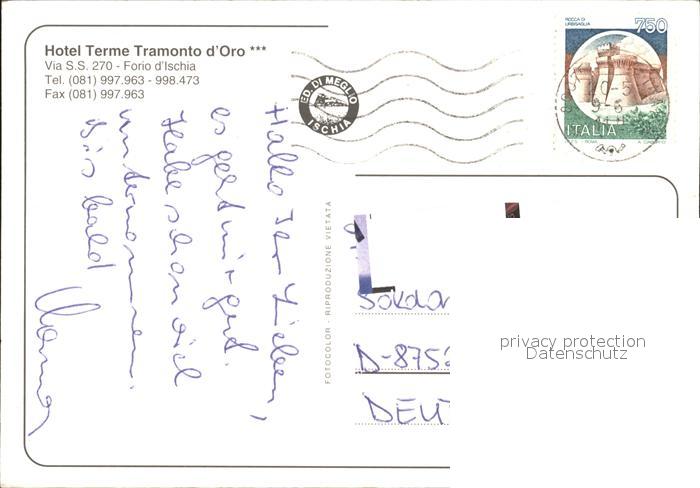 Hotel Terme Tramonto d'Oro ***
Via S.S. 270 - Forio d'Ischia
Tel. (081) 997.963 - 998.473
Fax (081) 997.963
ED. DI MEGLIO
ISCHIA
ROCCA DI
URBISAGLIA
750
ITALIA
Hallo Ihr Lieben,
es geht mir gut.
Habe schon viel
unternommen.
Bis bald
FOTOCOLOR - RIPRODUZIONE VIETATA
D-875
DEUT
privacy protection
Datenschutz